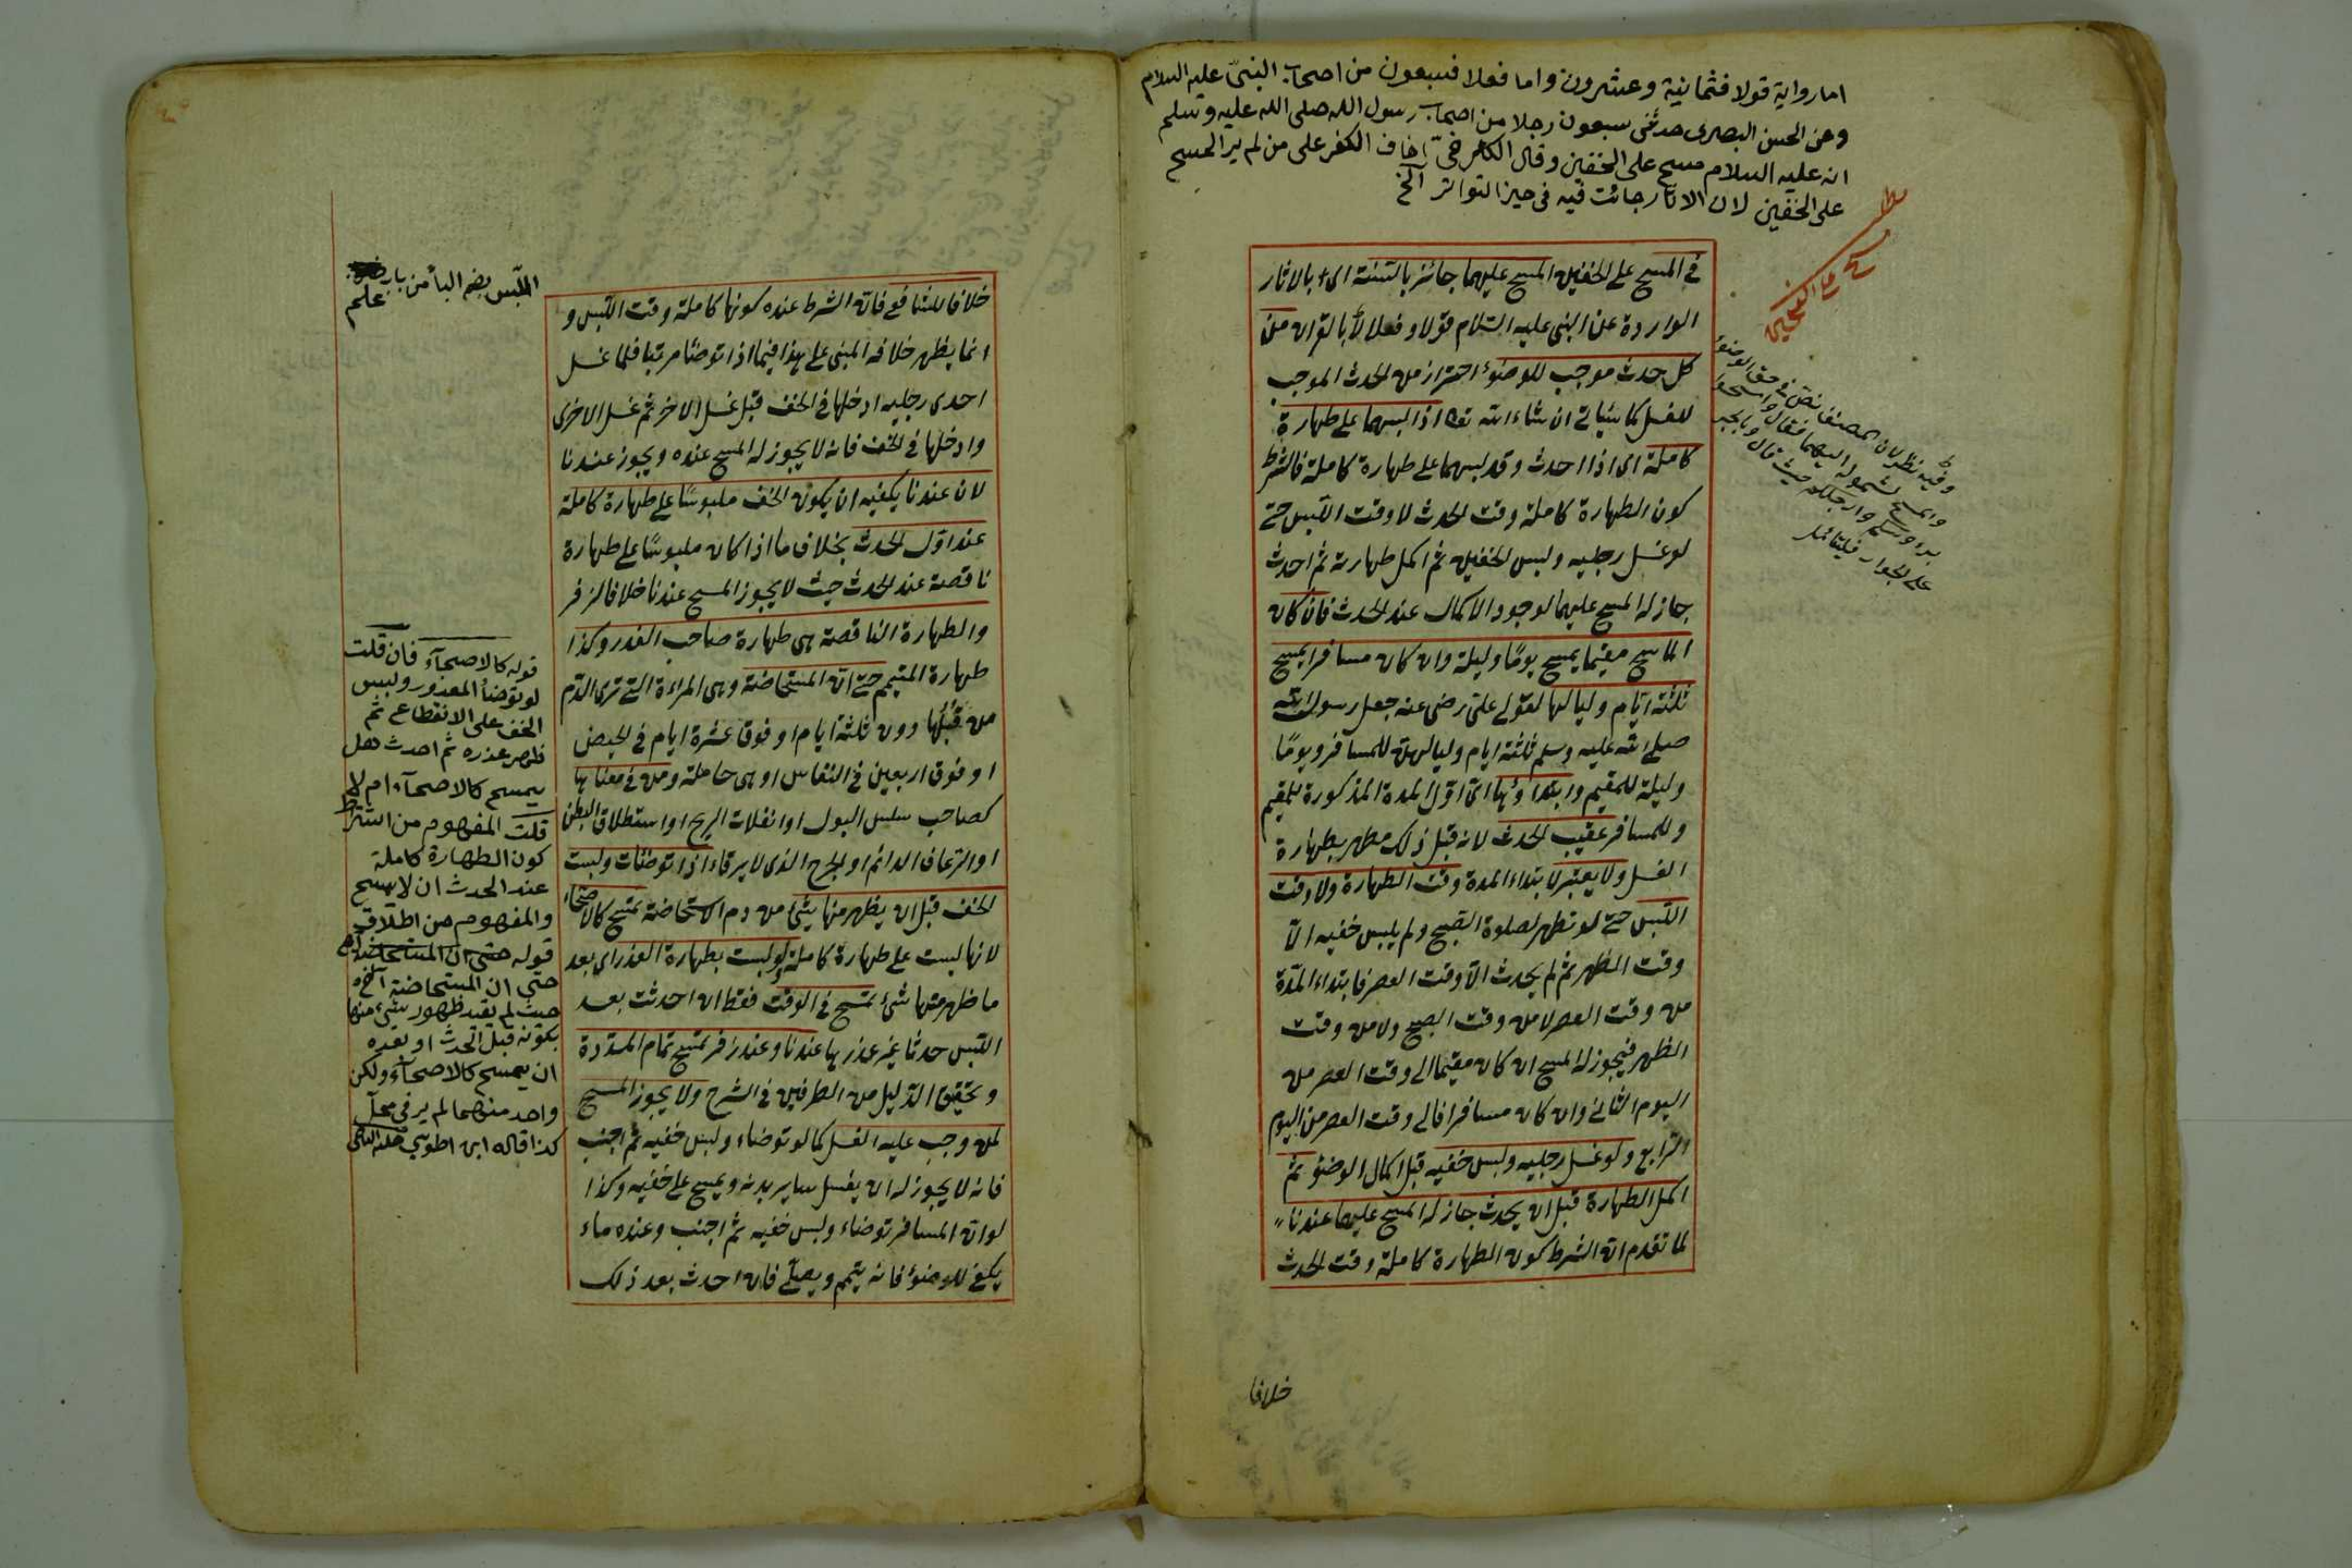 اما رواية قولا فثمانية وعشرون واما فعلا فسبعون من اصحاب النبىّ عليه السلام
وعن الحسن البصرى حدثنى سبعون رجلا من اصحاب رسول الله صلى الله عليه وسلم
انه عليه السلام مسح على الخفين وقال الكرخىّ اخاف الكفر على من لم ير المسح
على الخفين لان الاثار جائت فيه فى حيز التواتر الخ
فى المسح على الخفين المسح عليهما جائز بالسّنة اى بالاثار
الواردة عن النبى عليه السّلام قولا وفعلا لا بالقران من
كل حدث موجب للوضوء احتراز من الحدث الموجب
للغسل كما سيأتى ان شاء الله تعا اذا لبسهما على طهارة
كاملة اى اذا احدث وقد لبسهما على طهارة كاملة فالشرط
كون الطهارة كاملة وقت الحدث لا وقت اللّبس حتى
لو غسل رجليه ولبس الخفين ثم اكمل طهارته ثم احدث
جاز له المسح عليهما لوجود الاكمال عند الحدث فان كان
الماسح مقيما يمسح يومًا وليلة وان كان مسافرا يمسح
ثلثة ايّام ولياليها لقول علىّ رضى عنه جعل رسول الله
صلى الله عليه وسلم ثلثة ايام ولياليهن للمسافر ويومًا
وليلة للمقيم وابتداؤها اى اوّل المدة المذكورة للمقيم
وللمسافر عقيب الحدث لانه قبل ذلك مطهر بطهارة
الغسل ولا يعتبر لابتداء المدة وقت الطهارة ولا وقت
اللّبس حتى لو تطهر لصلوة الصّبح ولم يلبس خفيه الّا
وقت الظهر ثم لم يحدث الّا وقت العصر فابتداء المدّة
من وقت العصر لا من وقت الصبح ولا من وقت
الظهر فيجوز له المسح ان كان مقيما الى وقت العصر من
اليوم الثانى وان كان مسافرا فالى وقت العصر من اليوم
الرّابع ولو غسل رجليه ولبس خفيه قبل اكمال الوضؤ ثم
اكمل الطهارة قبل ان يحدث جاز له المسح عليهما عندنا
لما تقدم ان الشرط كون الطهارة كاملة وقت الحدث
وفيه نظر لان المصنف نصّ فى حق الوضوء
خلافا
خلافا للشافعى فان الشرط عنده كونها كاملة وقت اللّبس و
انما يظهر خلافه المبنى على هذا فيما اذا توضئا مرتبا فلما غسل
احدى رجليه ادخلها فى الخف قبل غسل الاخر ثم غسل الاخرى
وادخلها فى الخف فانه لا يجوز له المسح عنده ويجوز عندنا
لان عندنا يكفيه ان يكون الخف ملبوسًا على طهارة كاملة
عند اوّل الحدث بخلاف ما اذا كان ملبوسًا على طهارة
ناقصة عند الحدث حيث لا يجوز المسح عندنا خلافا لزفر
والطهارة الناقصة هى طهارة صاحب العذر وكذا
طهارة المتيمم حتى ان المستحاضة وهى المراءة التى ترى الدّم
من قُبُلُها دون ثلثة ايام او فوق عشرة ايام فى الحيض
او فوق اربعين فى النفاس او هى حاملة ومن فى معناها
كصاحب سلس البول او انفلات الريح او استطلاق البطن
او الرّعاف الدائم او الجرح الذى لا يرقاء اذا توضئات ولبست
الخف قبل ان يظهر منها شئ من دم الاستحاضة تمسح كالاصحاء
لانها لبست على طهارة كاملة ولو لبست بطهارة العذر اى بعد
ما ظهر منها شئ تمسح فى الوقت فقط ان احدثت بعد
اللّبس حدثا غير عذرها عندنا وعند زفر تمسح تمام المدّة
وتحقيق الدّليل من الطرفين فى الشرح ولا يجوز المسح
لمن وجب عليه الغسل كما لو توضاء ولبس خفيه ثم اجنب
فانه لا يجوز له ان يغسل سائر بدنه ويمسح على خفيه وكذا
لو ان المسافر توضاء ولبس خفيه ثم اجنب وعنده ماء
يكفى للوضوء فانه يتيمم ويصلّى فان احدث بعد ذلك
اللّبس بضم البأ من باب
علم
قوله كالاصحآء فان قلت
لو توضأ المعذور ولبس
الخف على الانقطاع ثم
ظهر عذره ثم احدث هل
يمسح كالاصحآء ام لا
قلت المفهوم من اشتراط
كون الطهارة كاملة
عند الحدث ان لا يمسح
والمفهوم من اطلاق
قوله
حتى ان المستحاضة آخره
حيث لم يقيد ظهور شئ منها
بكونه قبل الحدث او بعده
ان يمسح كالاصحآء ولكن
واحد منهما لم ير فى محلّ
كذا قاله ابن